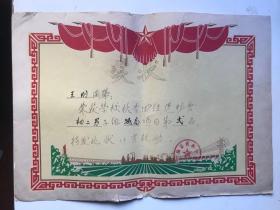 王明同学:
荣获学校秋季田径运动会
初二男子组跳高项目第弍名
特发此状以资鼓励